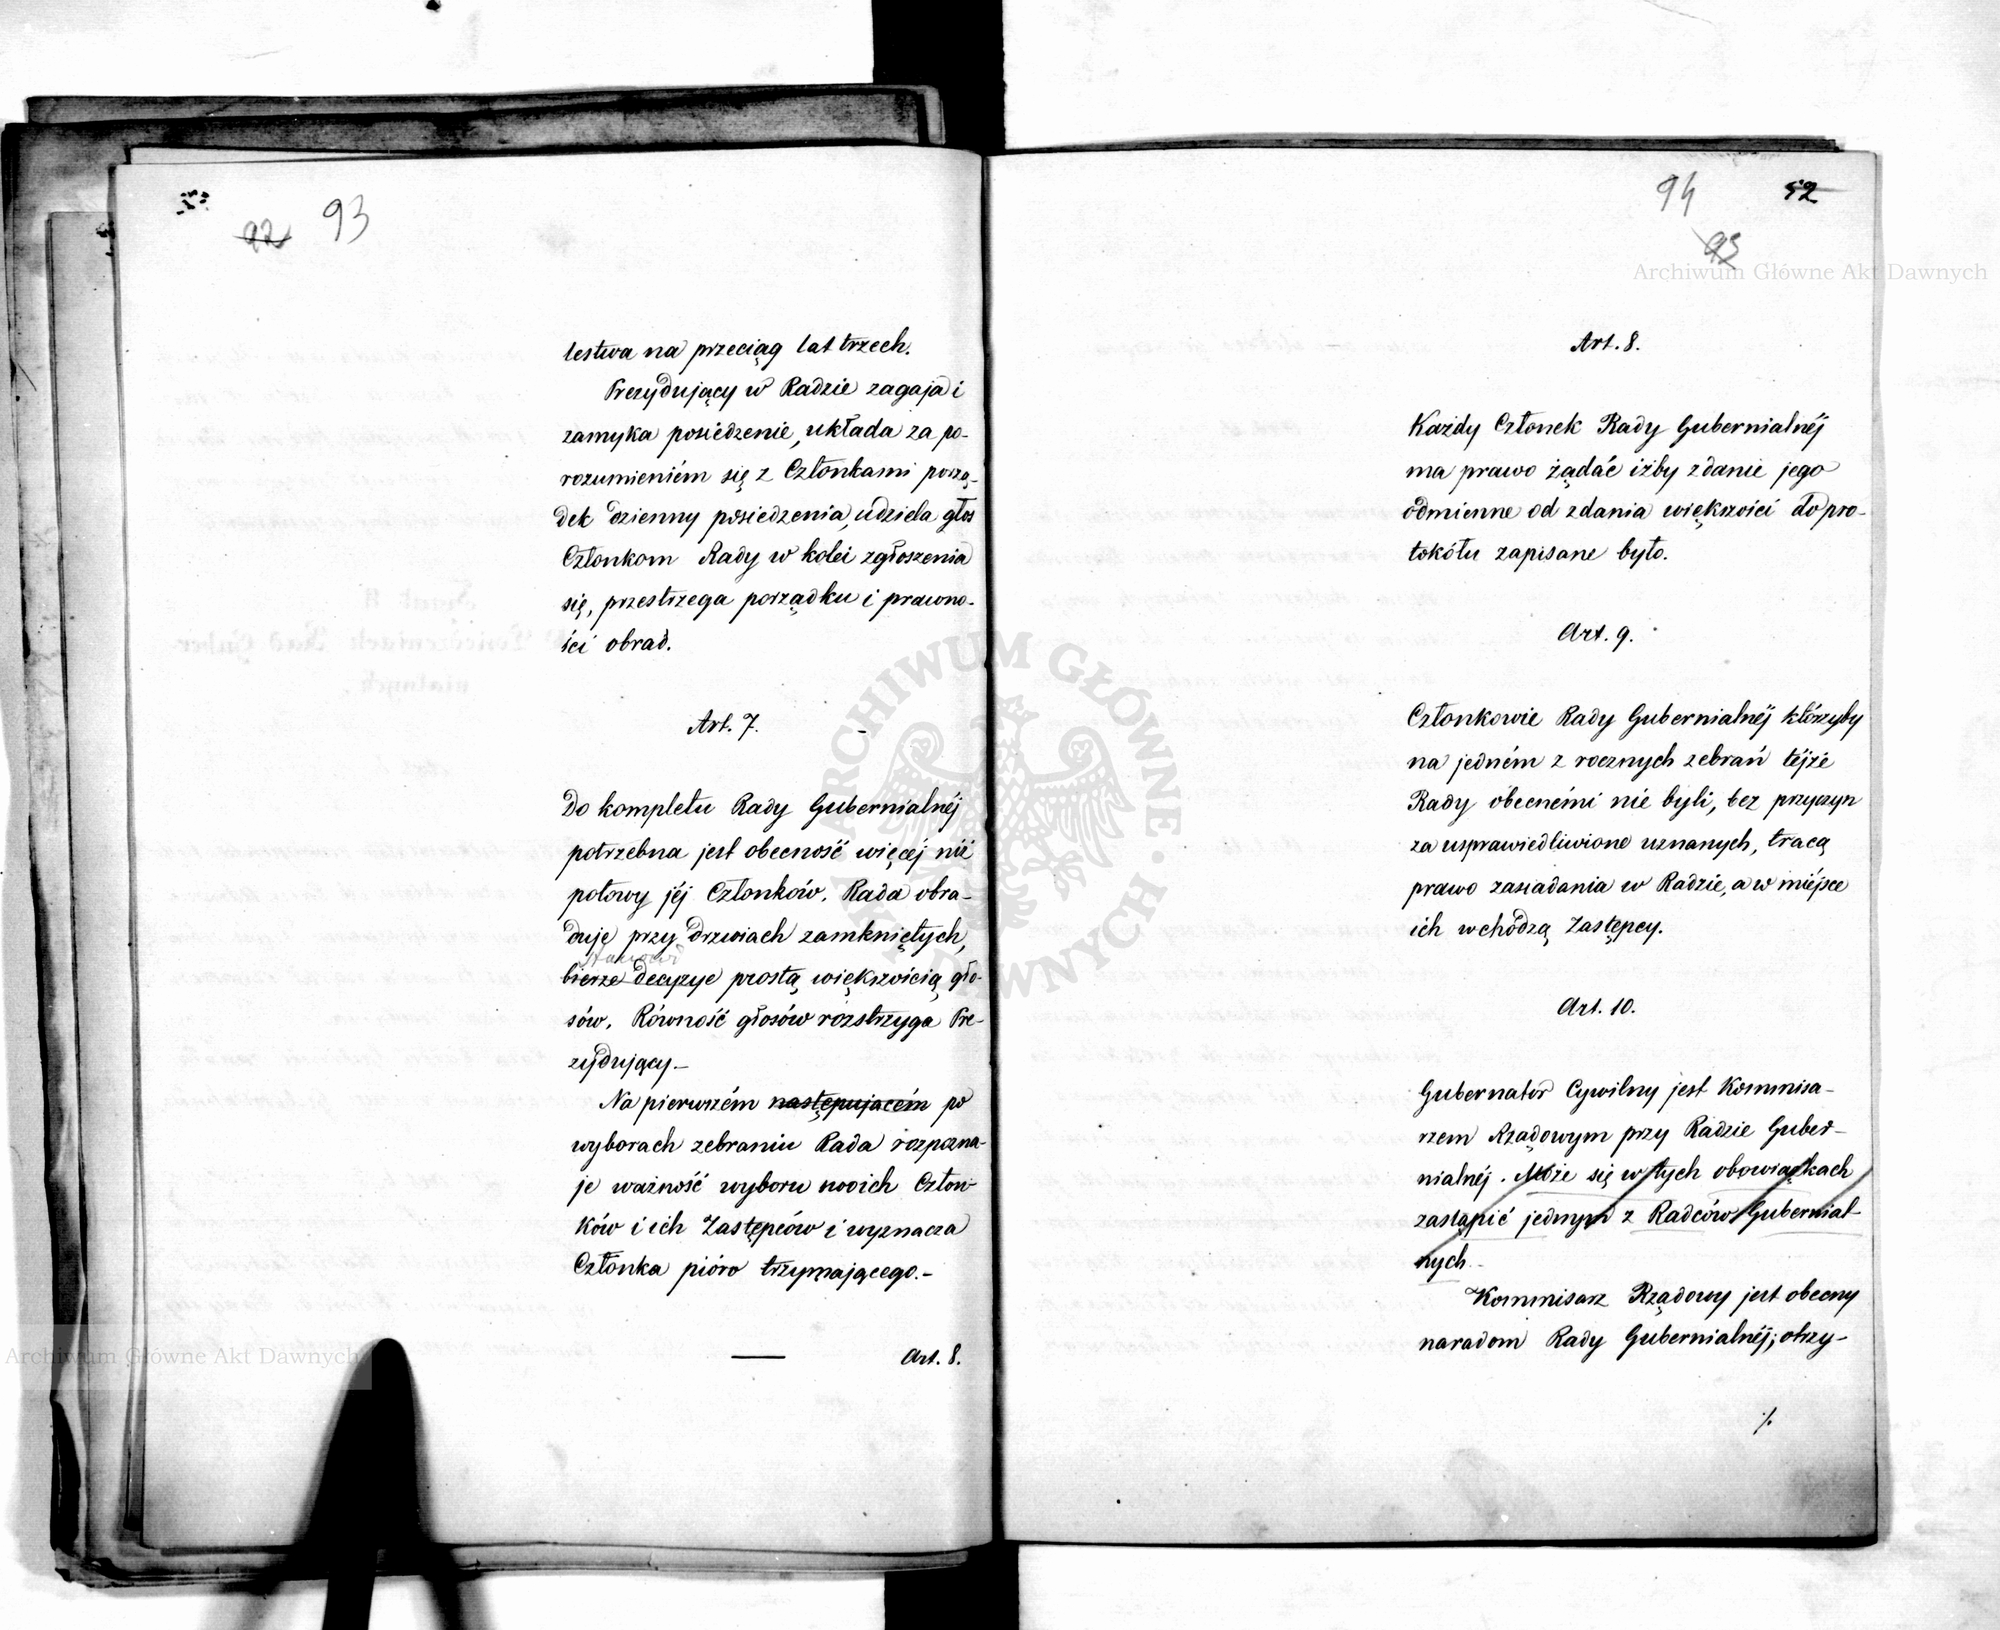 92 93
lestwa na przeciąg lat trzech.
Prezydujący w Radzie zagaja i
zamyka posiedzenie, układa za po-
rozumieniém się z Członkami porzą-
dek dzienny posiedzenia, udziela głos
Członkom Rady w kolei zgłoszenia
się, przestrzega porządku i prawno-
ści obrad.
Art. 7.
Do kompletu Rady Gubernialnéj
potrzebna jest obecność więcéj niż
połowy jéj Członków. Rada obra-
duje przy drzwiach zamkniętych,
stanowi
bierze decyzye prostą większością gło-
sów. Równość głosów rozstrzyga Pre-
zydujący.—
Na pierwszém następującém po
wyborach zebraniu Rada rozpozna-
je ważność wyboru nowych Człon-
ków i ich Zastępców i wyznacza
Członka pióro trzymającego.—
Art. 8.
94 52
93
Archiwum Główne Akt Dawnych
Art. 8.
Każdy Członek Rady Gubernialnéj
ma prawo żądać iżby zdanie jego
odmienne od zdania większości do pro-
tokółu zapisane było.
Art. 9.
Członkowie Rady Gubernialnéj którzyby
na jedném z rocznych zebrań téjże
Rady obecnémi nie byli, bez przyczyn
za usprawiedliwione uznanych, tracą
prawo zasiadania w Radzie, a w miéjsce
ich wchodzą Zastępcy.
Art. 10.
Gubernator Cywilny jest Kommisa-
rzem Rządowym przy Radzie Guber-
nialnéj. Może się w tych obowiązkach
zastąpić jednym z Radców Gubernial-
nych.
Kommisarz Rządowy jest obecny
naradom Rady Gubernialnéj; otrzy-
./.
ARCHIWUM GŁÓWNE AKT DAWNYCH
Archiwum Główne Akt Dawnych